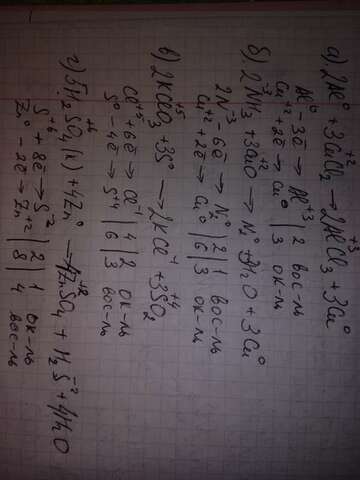 а) 2Al⁰ + 3CuCl₂⁺² → 2AlCl₃⁺³ + 3Cu⁰
Al⁰ - 3ē → Al⁺³ | 2 вос-ль
Cu⁺² + 2ē → Cu⁰ | 3 ок-ль
б) 2NH₃⁻³ + 3CuO⁺² → N₂⁰ + 3H₂O + 3Cu⁰
2N⁻³ - 6ē → N₂⁰ | 2 | 1 вос-ль
Cu⁺² + 2ē → Cu⁰ | 6 | 3 ок-ль
в) 2KClO₃⁺⁵ + 3S⁰ → 2KCl⁻¹ + 3SO₂⁺⁴
Cl⁺⁵ + 6ē → Cl⁻¹ | 4 | 2 ок-ль
S⁰ - 4ē → S⁺⁴ | 6 | 3 вос-ль
г) 5H₂SO₄⁺⁶(к) + 4Zn⁰ → 4Zn⁺²SO₄ + H₂S⁻² + 4H₂O
S⁺⁶ + 8ē → S⁻² | 2 | 1 ок-ль
Zn⁰ - 2ē → Zn⁺² | 8 | 4 вос-ль